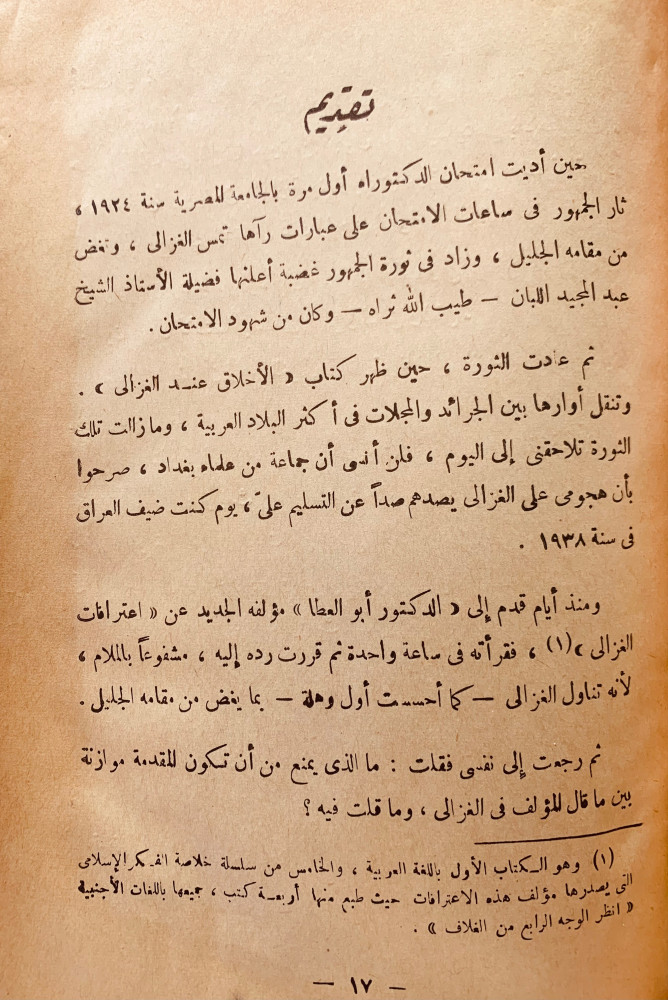 تقديم
حين أديت امتحان الدكتوراه أول مرة بالجامعة المصرية سنة ١٩٢٤ ،
ثار الجمهور فى ساعات الامتحان على عبارات رآها تمس الغزالى ، وتغض
من مقامه الجليل ، وزاد فى ثورة الجمهور غضبة أعلنها فضيلة الأستاذ الشيخ
عبد المجيد اللبان — طيب الله ثراه — وكان من شهود الامتحان .
ثم عادت الثورة ، حين ظهر كتاب « الأخلاق عند الغزالى » .
وتنقل أوارها بين الجرائد والمجلات فى أكثر البلاد العربية ، وما زالت تلك
الثورة تلاحقنى إلى اليوم ، فلن أنسى أن جماعة من علماء بغداد ، صرحوا
بأن هجومى على الغزالى يصدهم صداً عن التسليم علىّ ، يوم كنت ضيف العراق
فى سنة ١٩٣٨ .
ومنذ أيام قدم إلى « الدكتور أبو العطا » مؤلفه الجديد عن « اعترافات
الغزالى » (١) ، فقرأته فى ساعة واحدة ثم قررت رده إليه ، مشفوعاً بالملام ،
لأنه تناول الغزالى — كما أحسست أول وهلة — بما يغض من مقامه الجليل .
ثم رجعت إلى نفسى فقلت : ما الذى يمنع من أن تكون المقدمة موازنة
بين ما قال المؤلف فى الغزالى ، وما قلت فيه ؟
(١) وهو الكتاب الأول باللغة العربية ، والخامس من سلسلة خلاصة الفكر الإسلامى
التى يصدرها مؤلف هذه الاعترافات حيث طبع منها أربعة كتب ، جميعها باللغات الأجنبية
« انظر الوجه الرابع من الغلاف » .
— ١٧ —